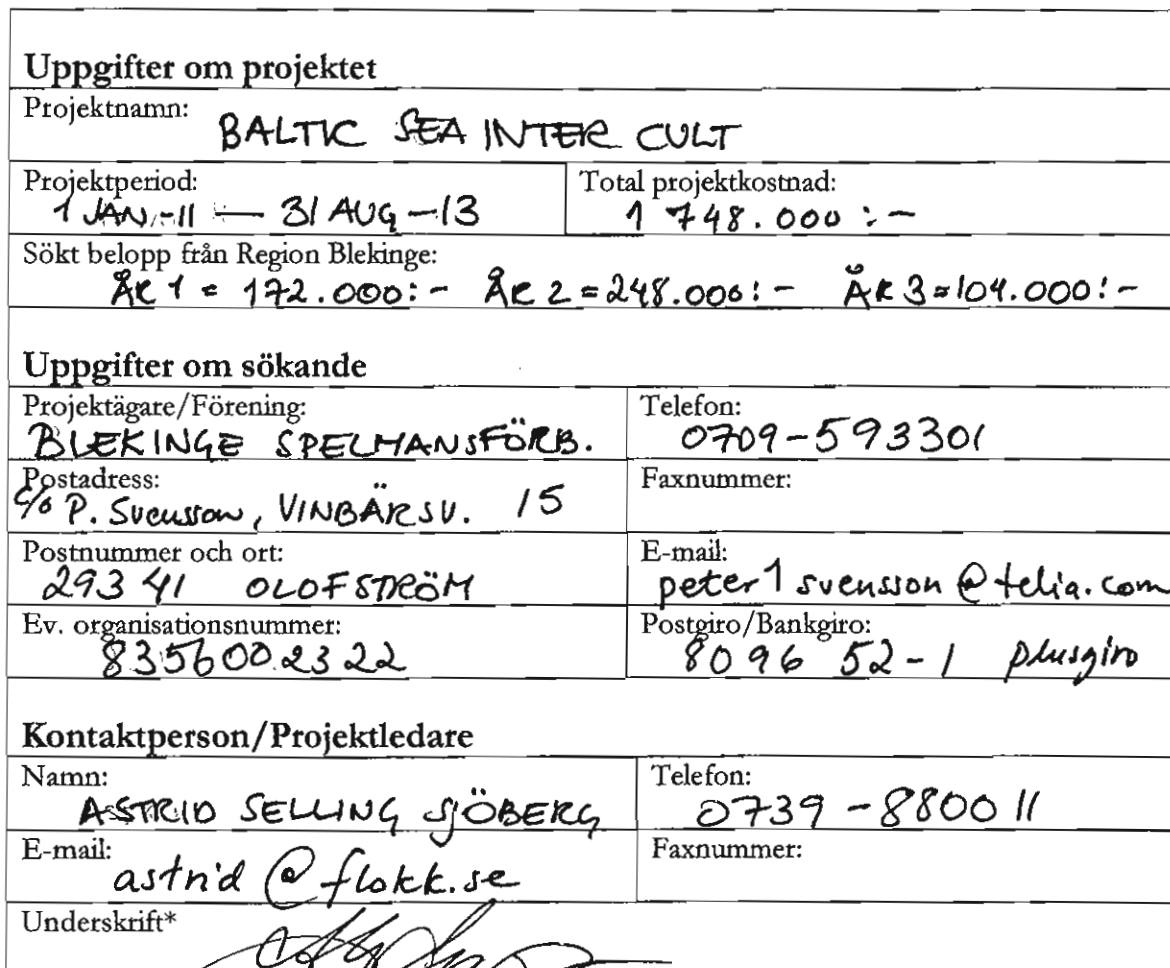 Uppgifter om projektet
Projektnamn:
BALTIC SEA INTER CULT
Projektperiod:
1 JAN -11 — 31 AUG -13
Total projektkostnad:
1 748.000:-
Sökt belopp från Region Blekinge:
ÅR 1 = 172.000:- ÅR 2 = 248.000:- ÅR 3 = 104.000:-
Uppgifter om sökande
Projektägare/Förening:
BLEKINGE SPELMANSFÖRB.
Telefon:
0709-593301
Postadress:
c/o P. Svensson, VINBÄRSV. 15
Faxnummer:
Postnummer och ort:
293 41 OLOFSTRÖM
E-mail:
peter1svensson@telia.com
Ev. organisationsnummer:
8356002322
Postgiro/Bankgiro:
8096 52-1 plusgiro
Kontaktperson/Projektledare
Namn:
ASTRID SELLING SJÖBERG
Telefon:
0739-880011
E-mail:
astrid@flokk.se
Faxnummer:
Underskrift*